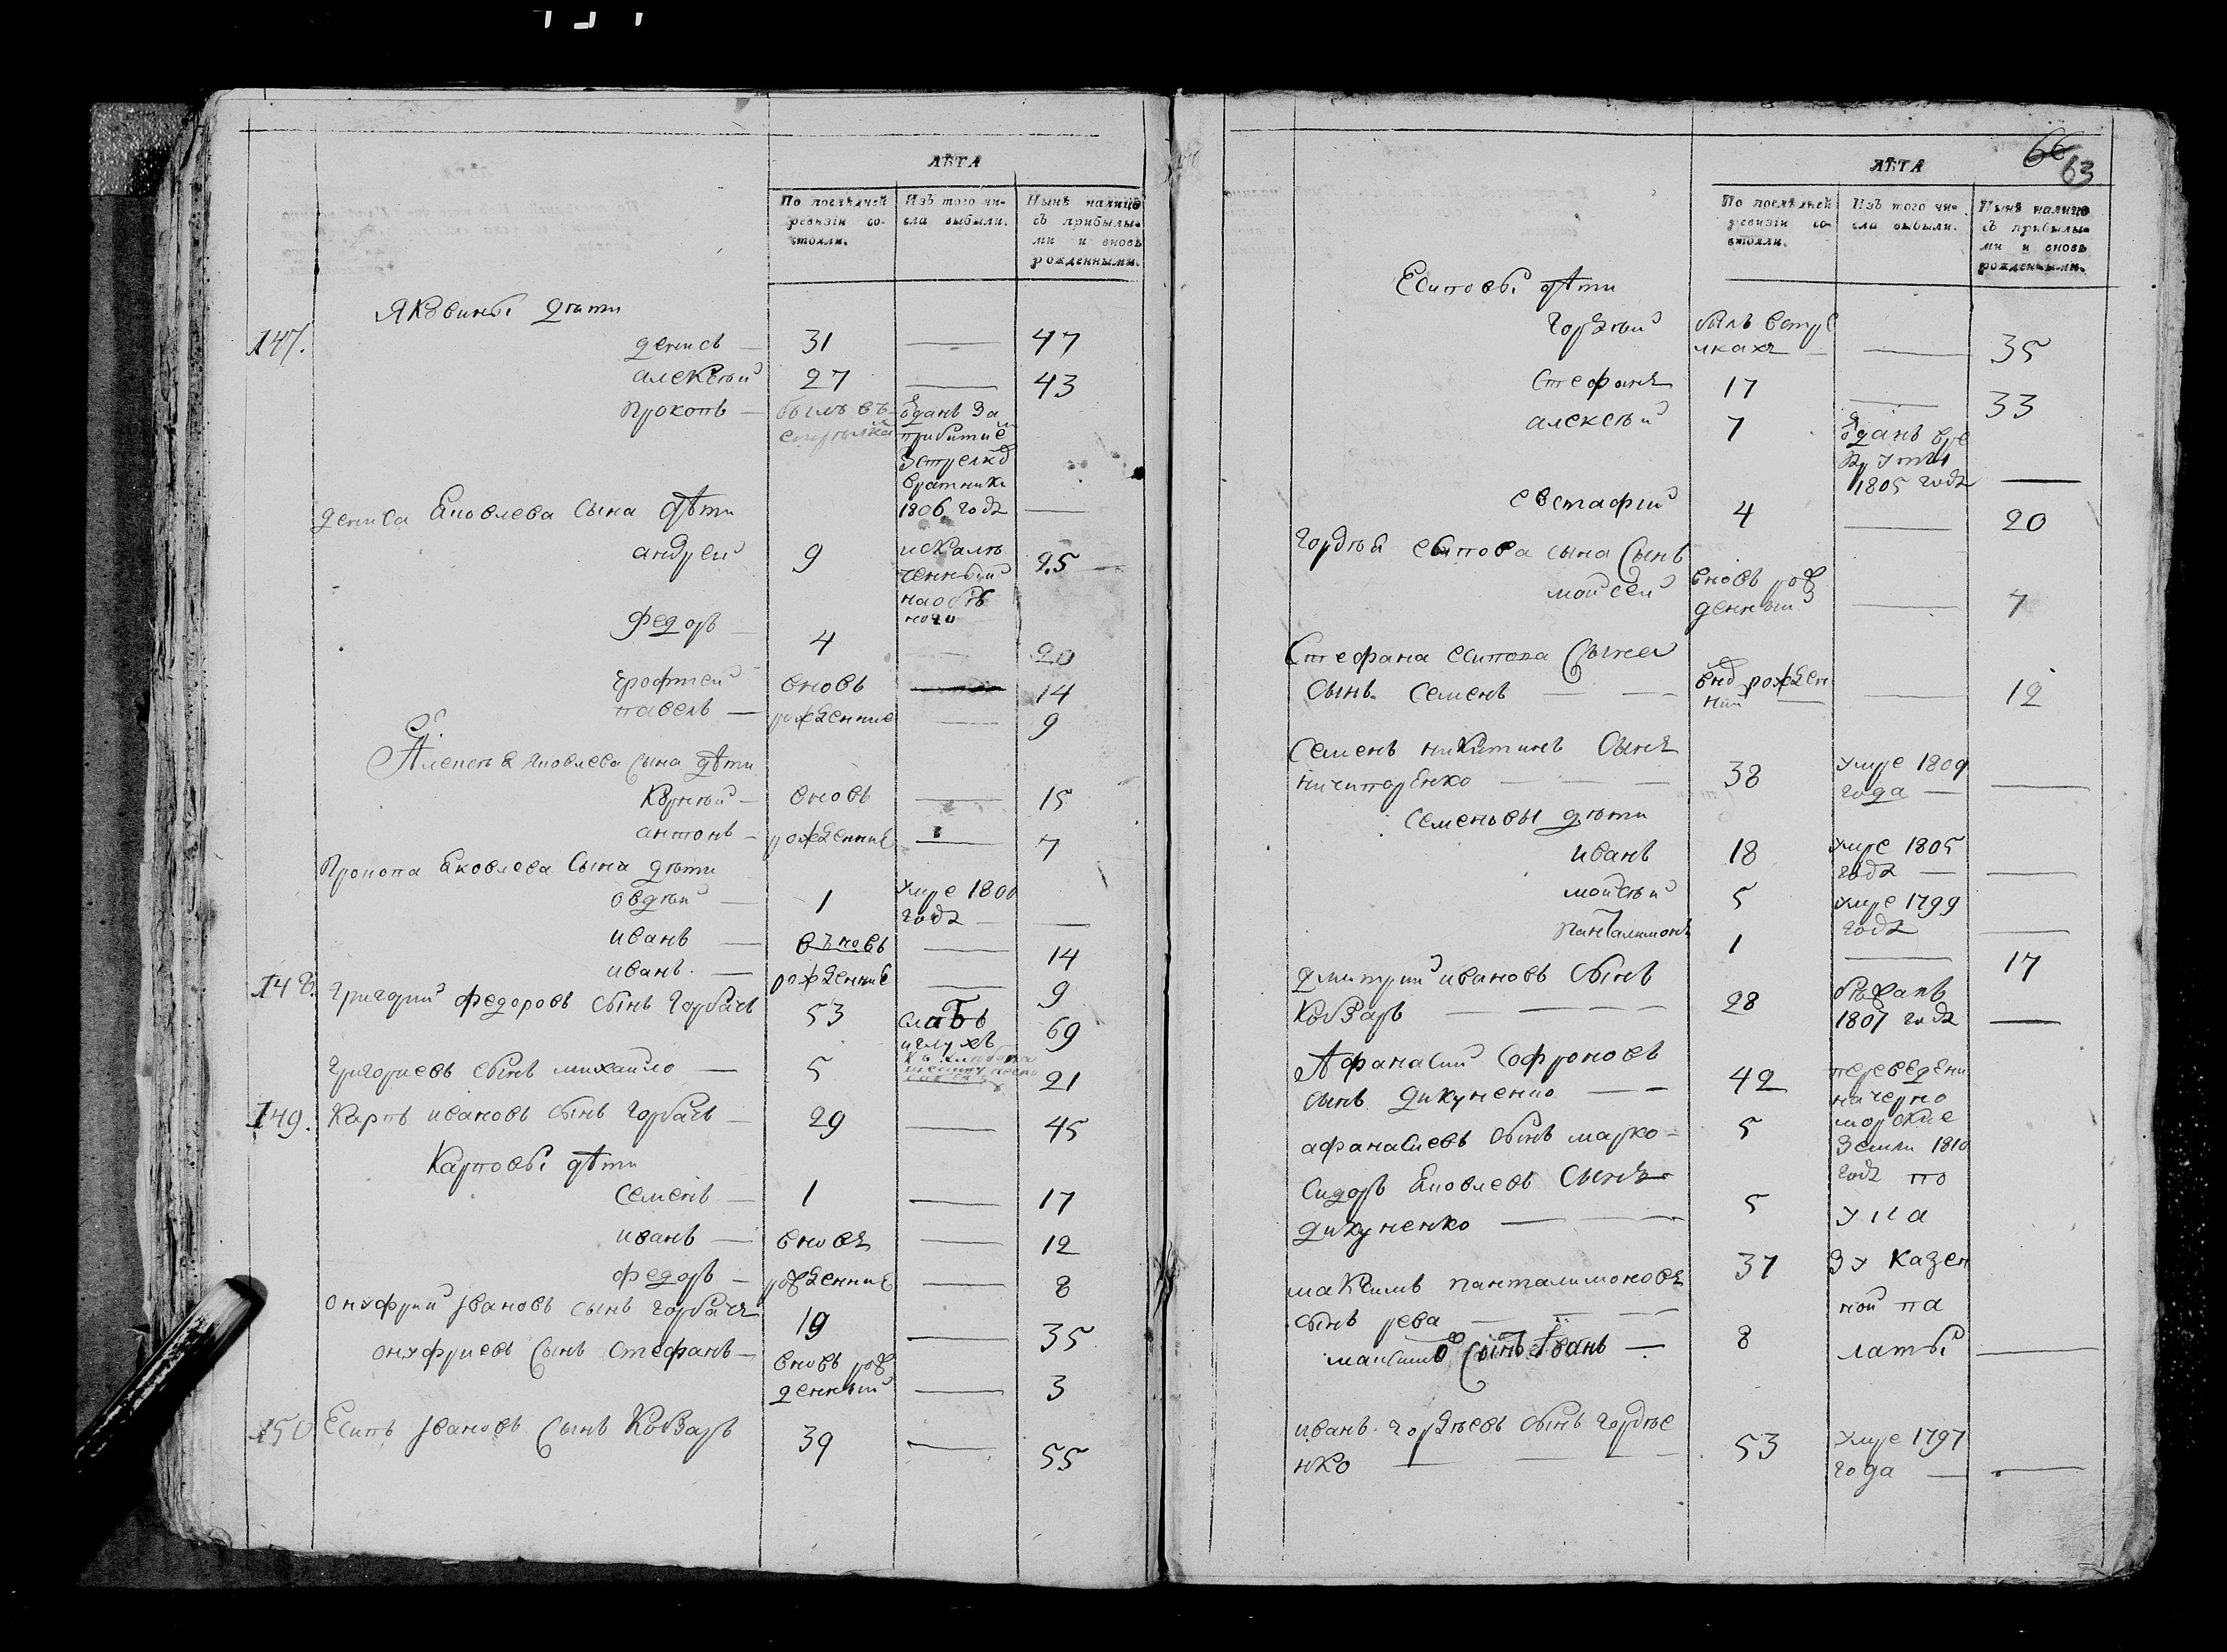 ЛѢТА
По послѣдней ревизіи состояли.
Изъ того числа выбыли.
Нынѣ налицо съ прибылыми и вновь рожденными.
Яковины дѣти
147.
денисъ — 31 — 47
алексѣй 27 — 43
прокопъ — былъ въ
зданъ за
1806 годъ —
дениса Яковлева сына дѣти
андрей 9 25 —
искалѣ
ченный
ноги
федоръ — 4 — 20
ерофтей вновь — 14
павелъ — рожденние — 9
Алексѣя Яковлева сына дѣти
Корнѣй — вновь — 15
антонъ — рожденние — 7
Прокопа Яковлева сына дѣти
овдѣй — 1 умре 1800
годъ — —
иванъ — въновь — 14
иванъ. — рожденние — 9
148. Григорий федоровъ сынъ горбачъ 53 слабъ
и глухъ 69
Григориевъ сынъ михайло — 5 21
149. Карпъ ивановъ сынъ горбачъ — 29 — 45
Карповы дѣти
Семенъ — 1 — 17
иванъ — вновь — 12
федоръ — рожденние — 8
онуфрий Ивановъ сынъ горбачъ 19 — 35
онуфриевъ сынъ Стефанъ — вновь рож
денный — 3
150 Есипъ Ивановъ сынъ Ковзаръ 39 — 55
66
63
ЛѢТА
По послѣдней ревизіи состояли.
Изъ того числа выбыли.
Нынѣ налицо съ прибылыми и вновь рожденными.
Есиповы дѣти
Гордѣй былъ встре
лкахъ — 35
Стефанъ 17 — 33
алексѣй 7 зданъ вре
круты
1805 годъ —
евстафий 4 — 20
Гордѣя Есипова сына сынъ
мойсей вновь рож
денный — 7
Стефана Есипова сына
сынъ семенъ — — вно рожден
ний — 12
Семенъ никитинъ сынъ
ничипоренко — — 38 умре 1809
года — —
Семеновы дѣти
иванъ 18 умре 1805
годъ — —
мойсѣй 5 умре 1799
годъ —
панталимонъ 1 — 17
дмитрий ивановъ сынъ
Ковзаръ — — — 28 бѣжалъ
1807 годъ —
Афанасий Софроновъ
сынъ дикуненко — — 42 переведени
на черно
афанасиевъ сынъ марко — 5 морские
земли 1810
годъ по
Сидоръ Яковлевъ сынъ
дикуненко — — 5 ука
максимъ панталимоновъ 37 зу казен
сынъ рева — — — ной па
максимовъ сынъ Иванъ — 8 латы —
иванъ гордѣевъ сынъ гордѣе
нко — — — 53 умре 1797
года — —